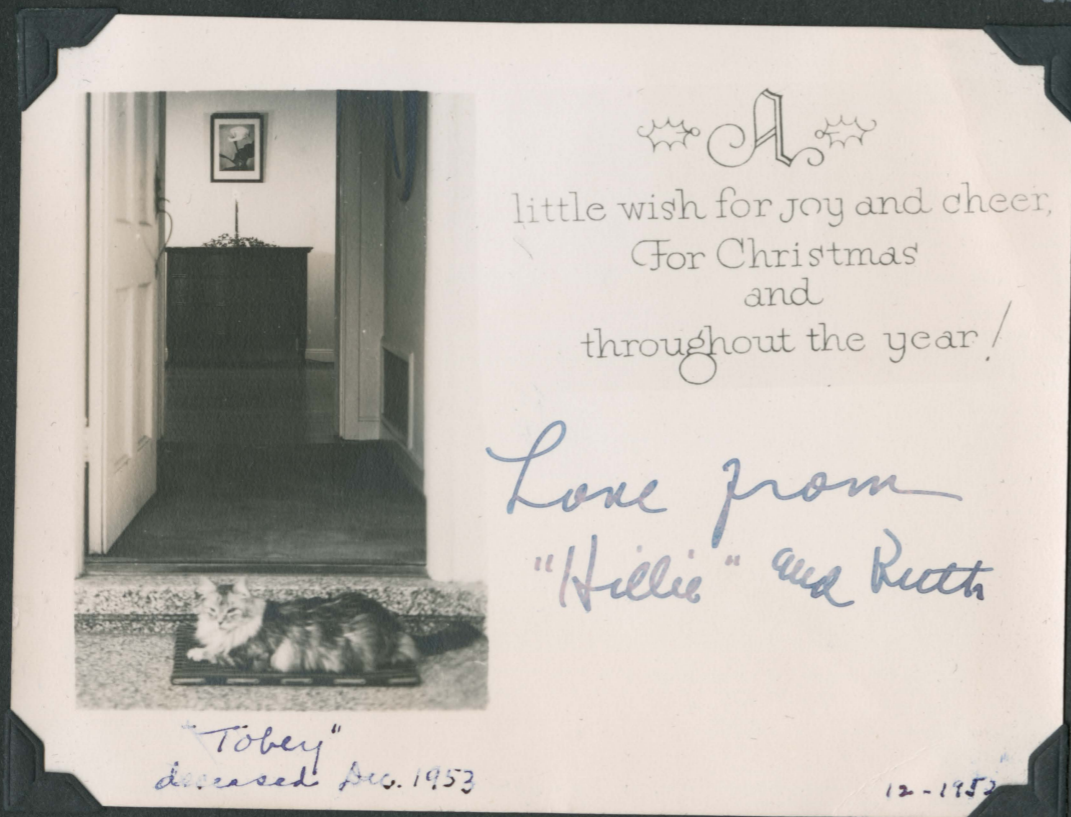 A
little wish for joy and cheer,
For Christmas
and
throughout the year!
Love from
"Hillie" and Ruth
"Tobey"
deceased Dec. 1953
12-1952